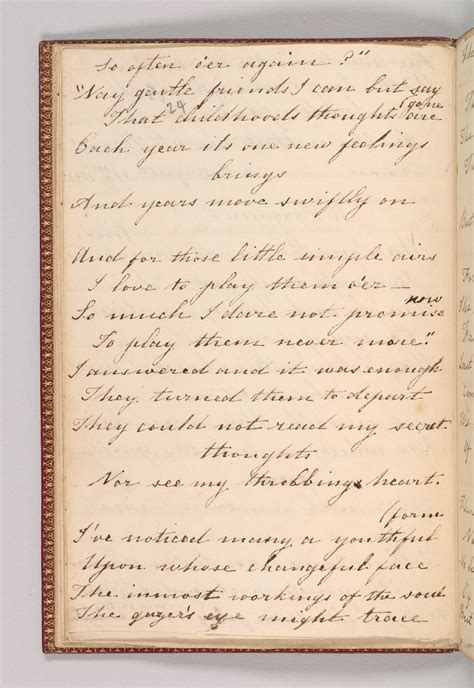 So often o'er again?"
"Nay gentle friends I can but say
24
That childhood's thoughts are (gone
Each year its one new feelings
brings
And years move swiftly on
And for those little simple airs
I love to play them o'er —
So much I dare not promise now
To play them never more."
I answered and it was enough
They turned them to depart
They could not read my secret
thoughts
Nor see my throbbing heart.
(form
I've noticed many a youthful
Upon whose changeful face
The inmost workings of the soul
The gazer's eye might trace